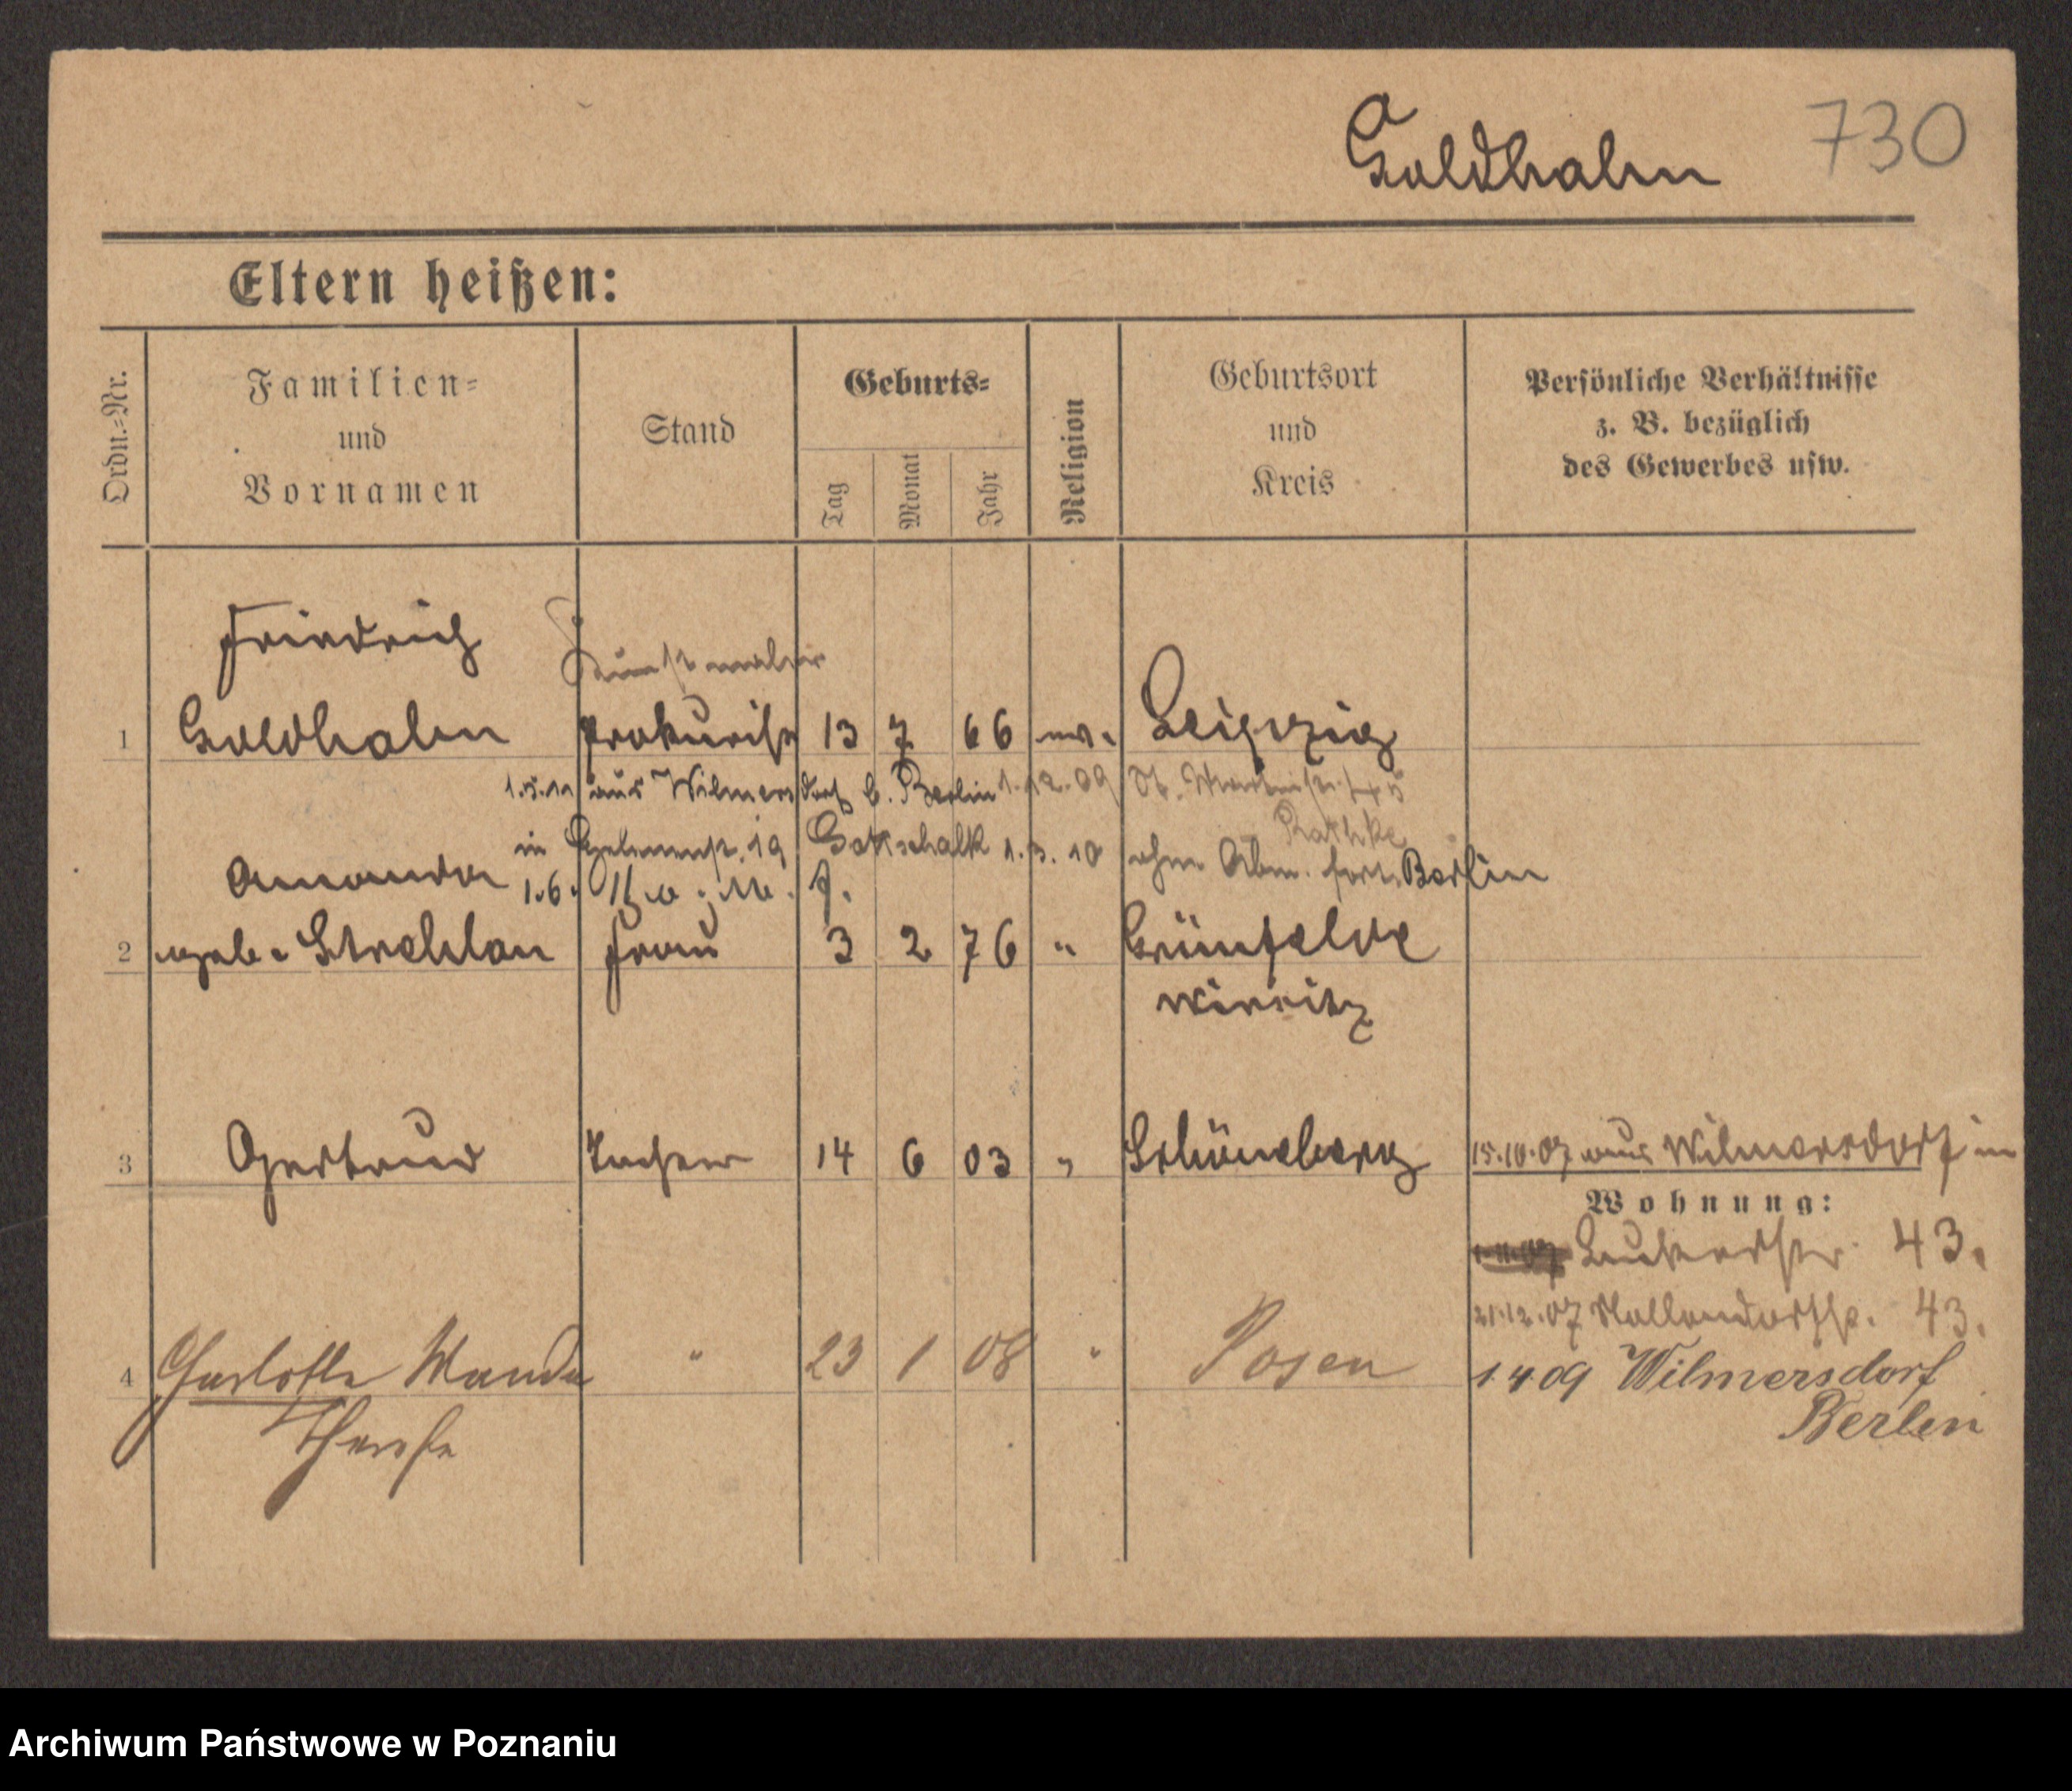 Goldhahn 730
Eltern heißen:
Ordn.-Nr.
Familien-
und
Vornamen
Stand
Geburts-
Tag
Monat
Jahr
Religion
Geburtsort
und
Kreis
Persönliche Verhältnisse
z. B. bezüglich
des Gewerbes usw.
Friedrich
Kunstmaler
1 Goldhahn Prokurist 13 7 66 ev. Leipzig
1.5.11 aus Wilmersdorf b. Berlin 1.12.09 St. Martinstr.
in 19 Gottschalk 1.3.10 Rathke
ohne Abm. fort Berlin
Amanda 1.6.
2 geb. Strehlau Frau 3 2 76 " Grünfelde
Wirsitz
3 Gertrud Tochter 14 6 03 " Schöneberg 15.10.07 aus Wilmersdorf in
Wohnung:
43.
21.12.07 43.
4 Charlotte Wanda " 23 1 08 " Posen 1 4 09 Wilmersdorf
Berlin
Therese
Archiwum Państwowe w Poznaniu